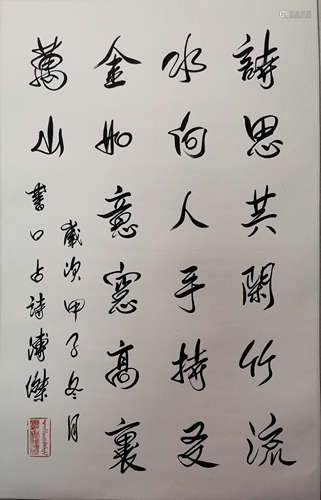 詩思共閑竹流
水向人手持
金如意窓高裏
萬山
歲次甲子冬月
書口占詩溥傑